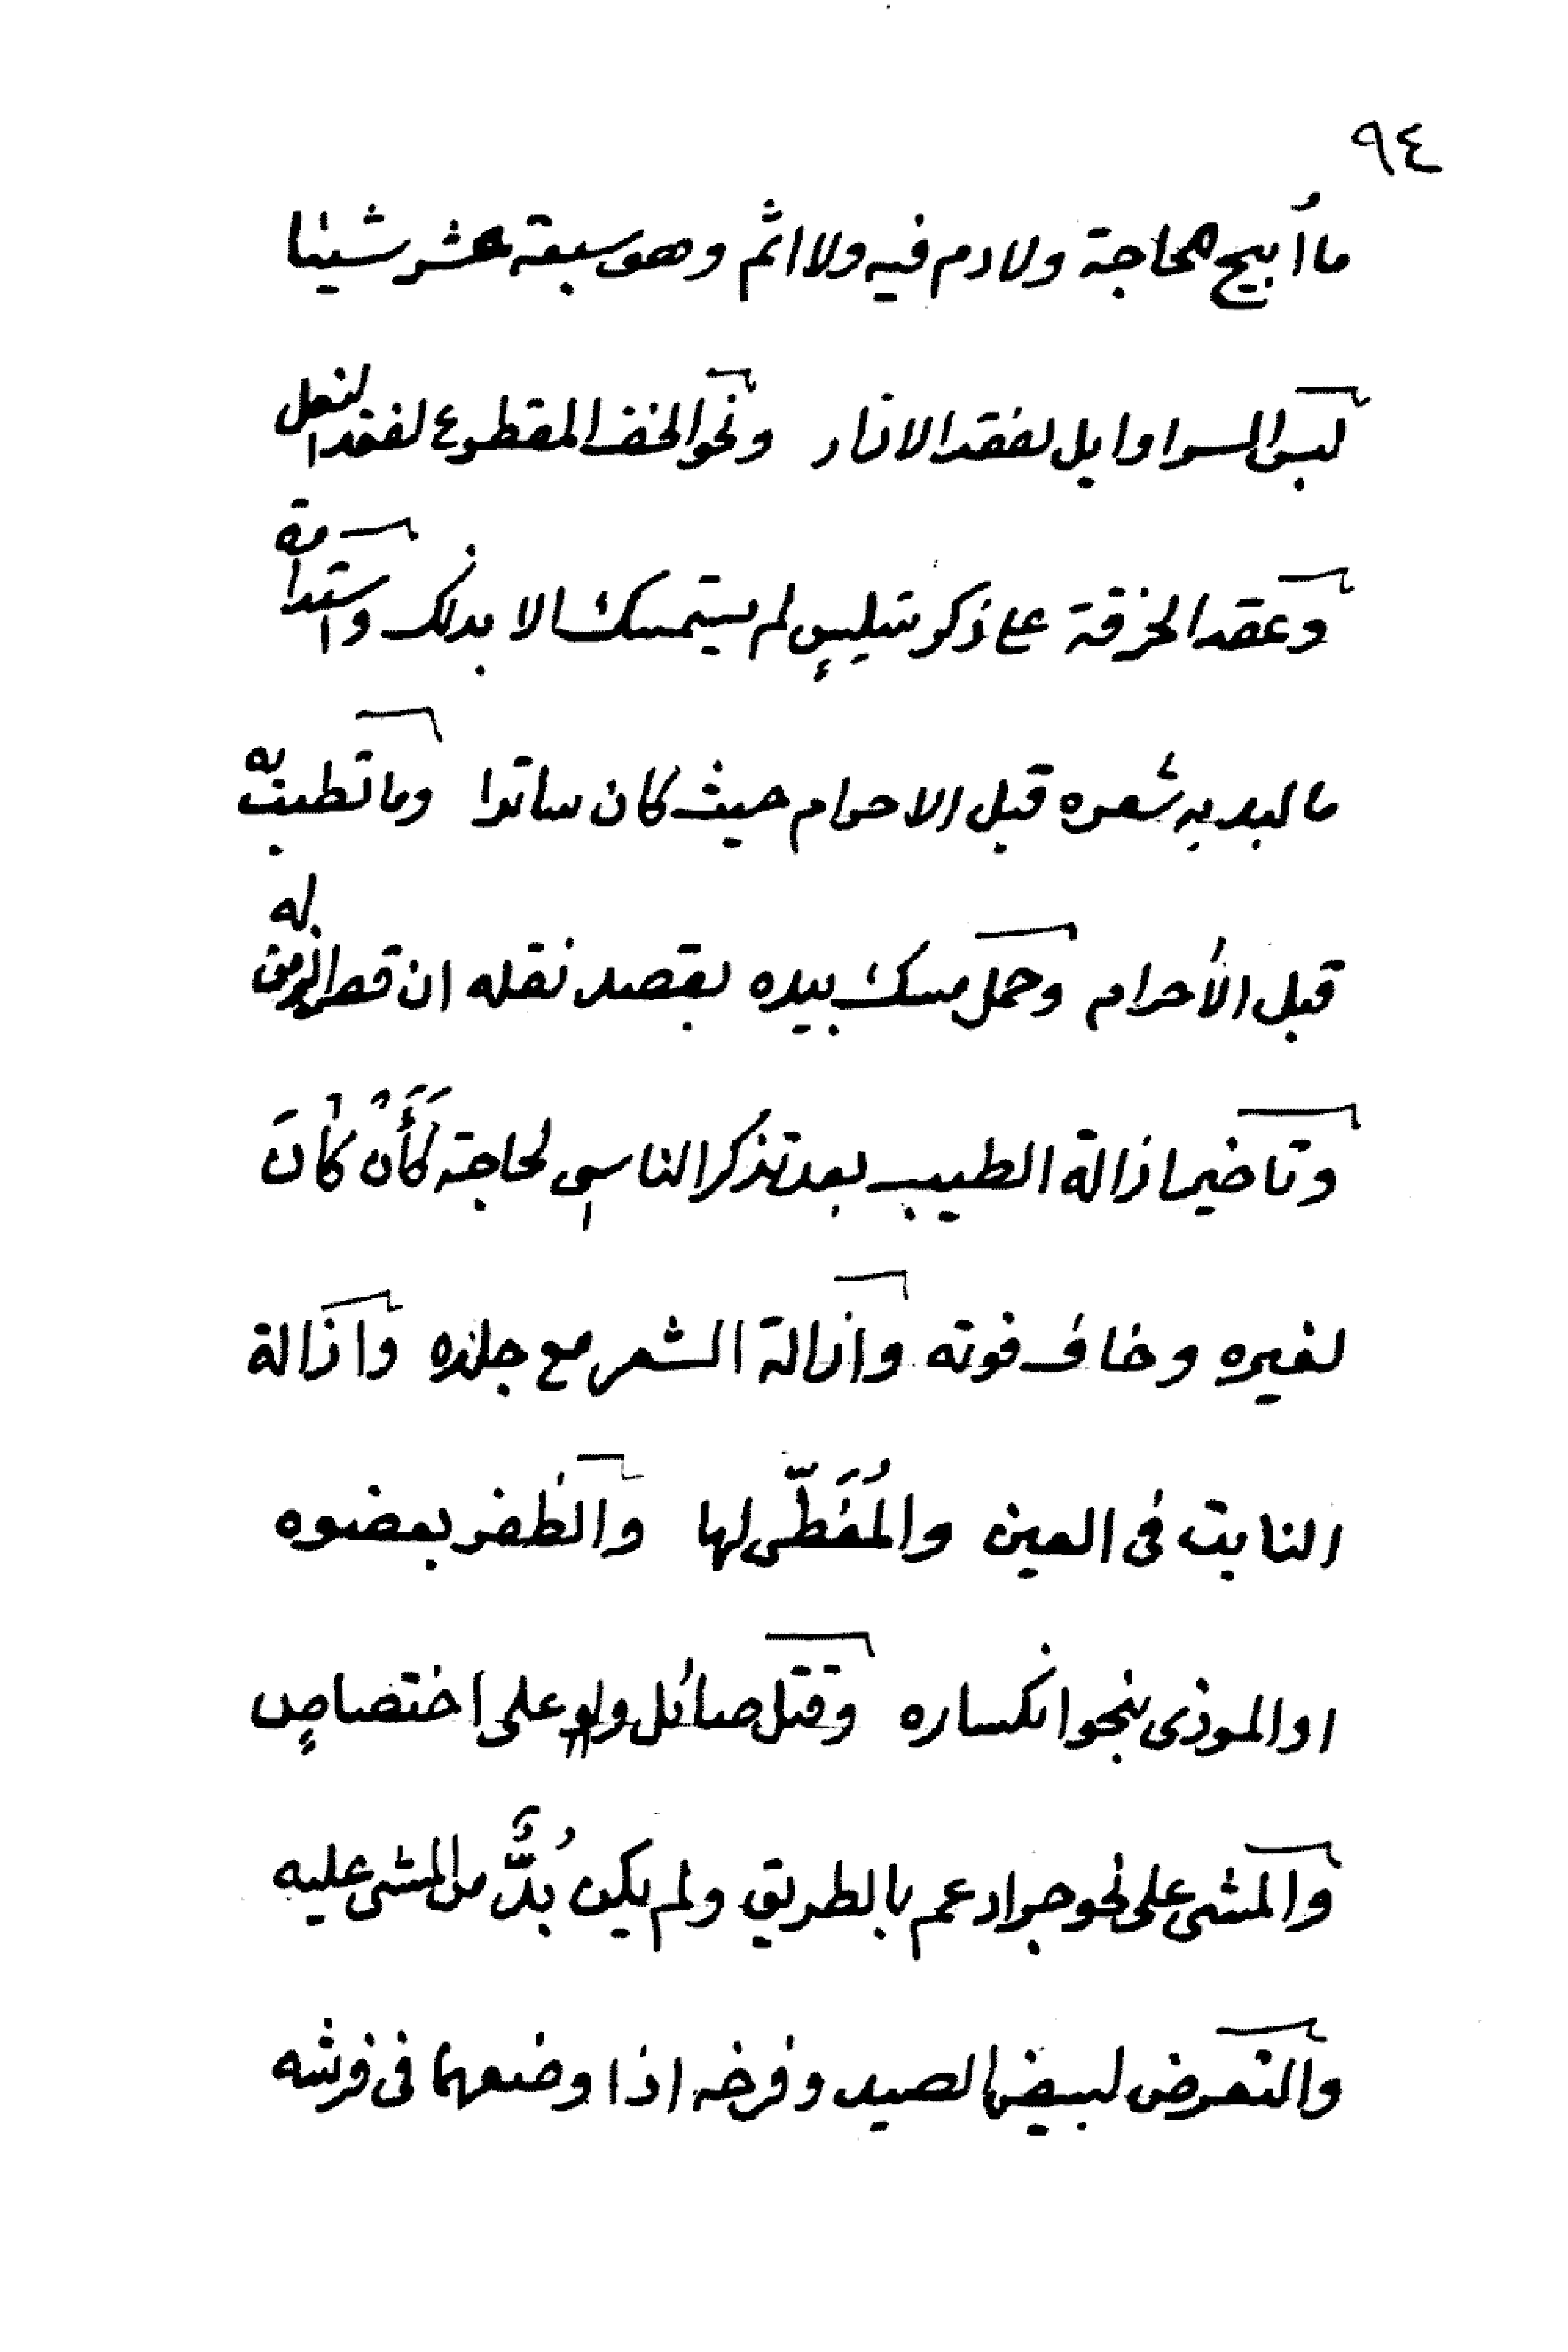 ٩٤
ما أُبيح لحاجة ولا دم فيه ولا اثم وهو سبعة عشر شيئا
لبس السراويل لفقد الازار ونحو الخف المقطوع لفقد النعل
وعقد الخرقة على ذكر سلس لم يستمسك الا بذلك واستدامة
ما لبد به شعره قبل الاحرام حيث كان ساترا وما تطيب به
قبل الأحرام وحمل مسك بيده بقصد نقله ان قصر الزمن له
وتاخير ازالة الطيب بعد تذكر الناسي لحاجة كَأَنْ كَانَ
لغيره وخاف فوته وازالة الشعر مع جلده وازالة
النابت في العين والمُغَطّى لها والظفر بعضوه
او الموذى بنحو انكساره وقتل صائل ولو على اختصاصٍ
والمشى على نحو جراد عم بالطريق ولم يكن بُدٌّ من المشى عليه
والتعرض لبيض الصيد وفرخه اذا وضعهما فى فرشه